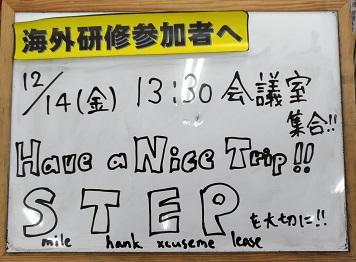 海外研修参加者へ
12/14(金) 13:30 会議室
集合!!
Have a Nice Trip!!
STEP
mile hank xcuseme lease を大切に!!